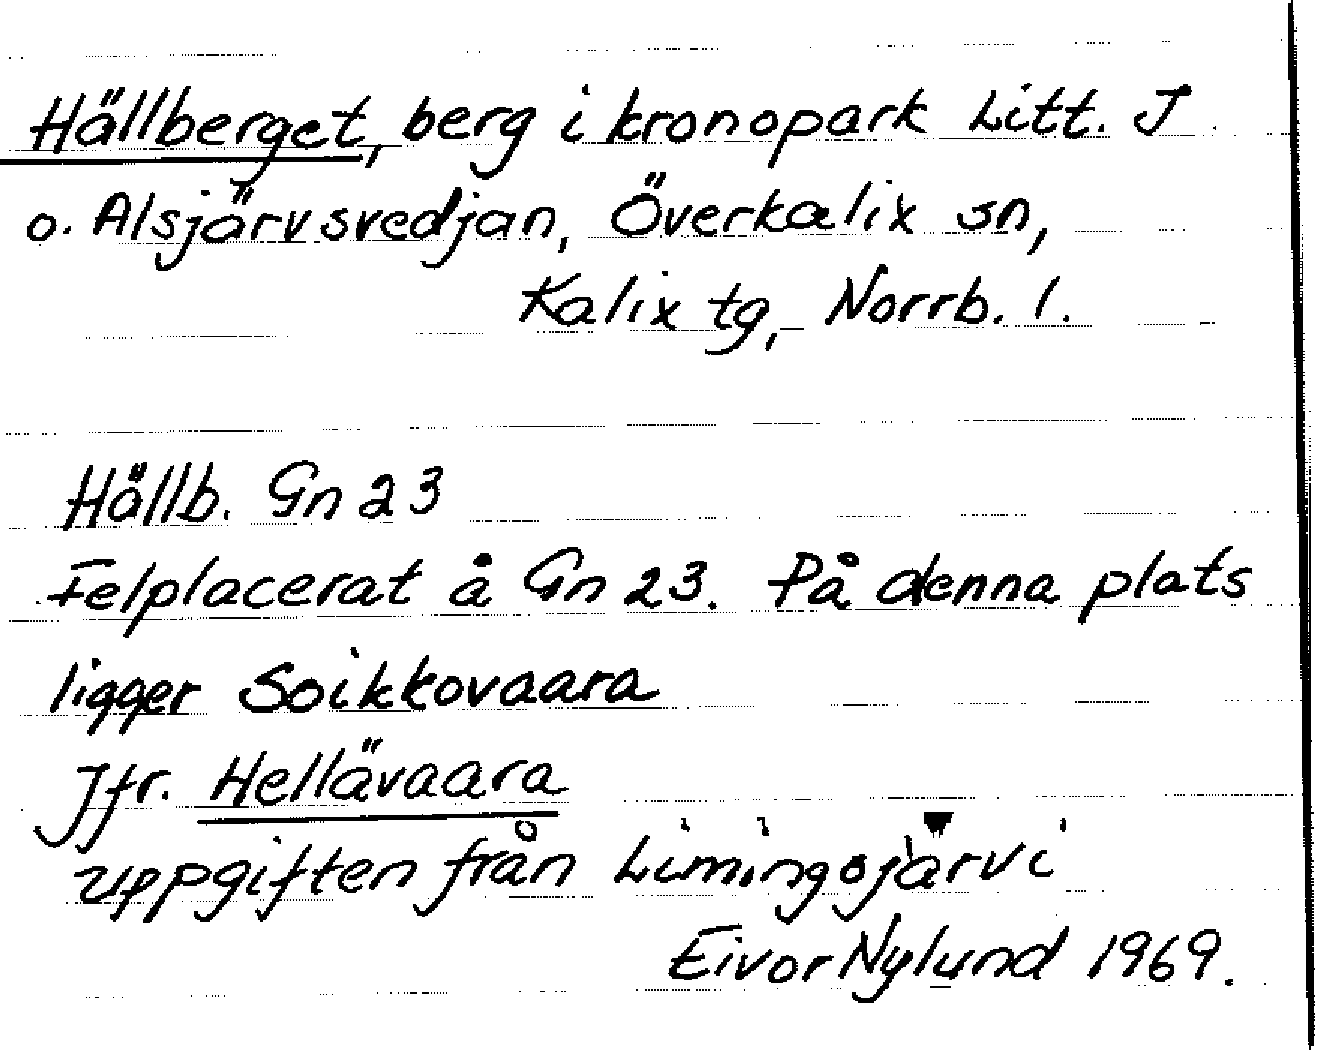 Hällberget, berg i kronopark Litt. J
o. Alsjärvsvedjan, Överkalix sn,
Kalix tg, Norrb. l.
Hällb. Gn 23
Felplacerat å Gn 23. På denna plats
ligger Soikkovaara
Jfr. Hellävaara
uppgiften från Limingojärvi
Eivor Nylund 1969.